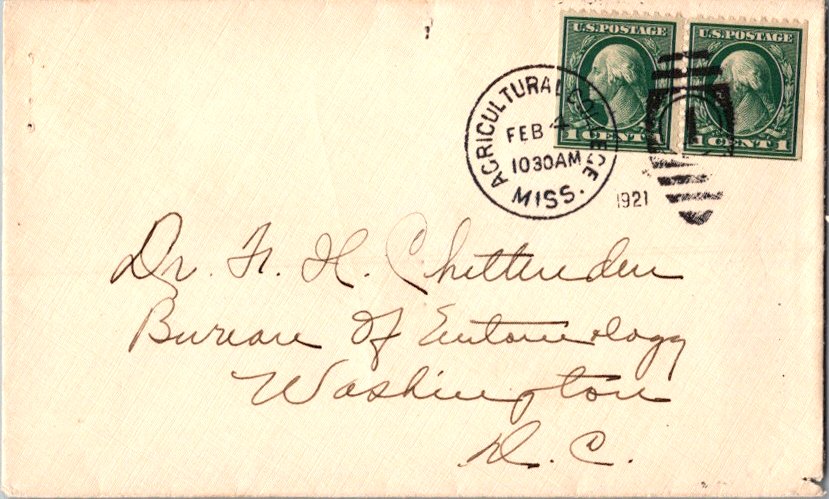 U.S. POSTAGE
1 CENT 1
U.S. POSTAGE
1 CENT 1
AGRICULTURAL COLLEGE
FEB 4
1030AM
MISS.
1921
Dr. F. H. Chittenden
Bureau Of Entomology
Washington
D. C.